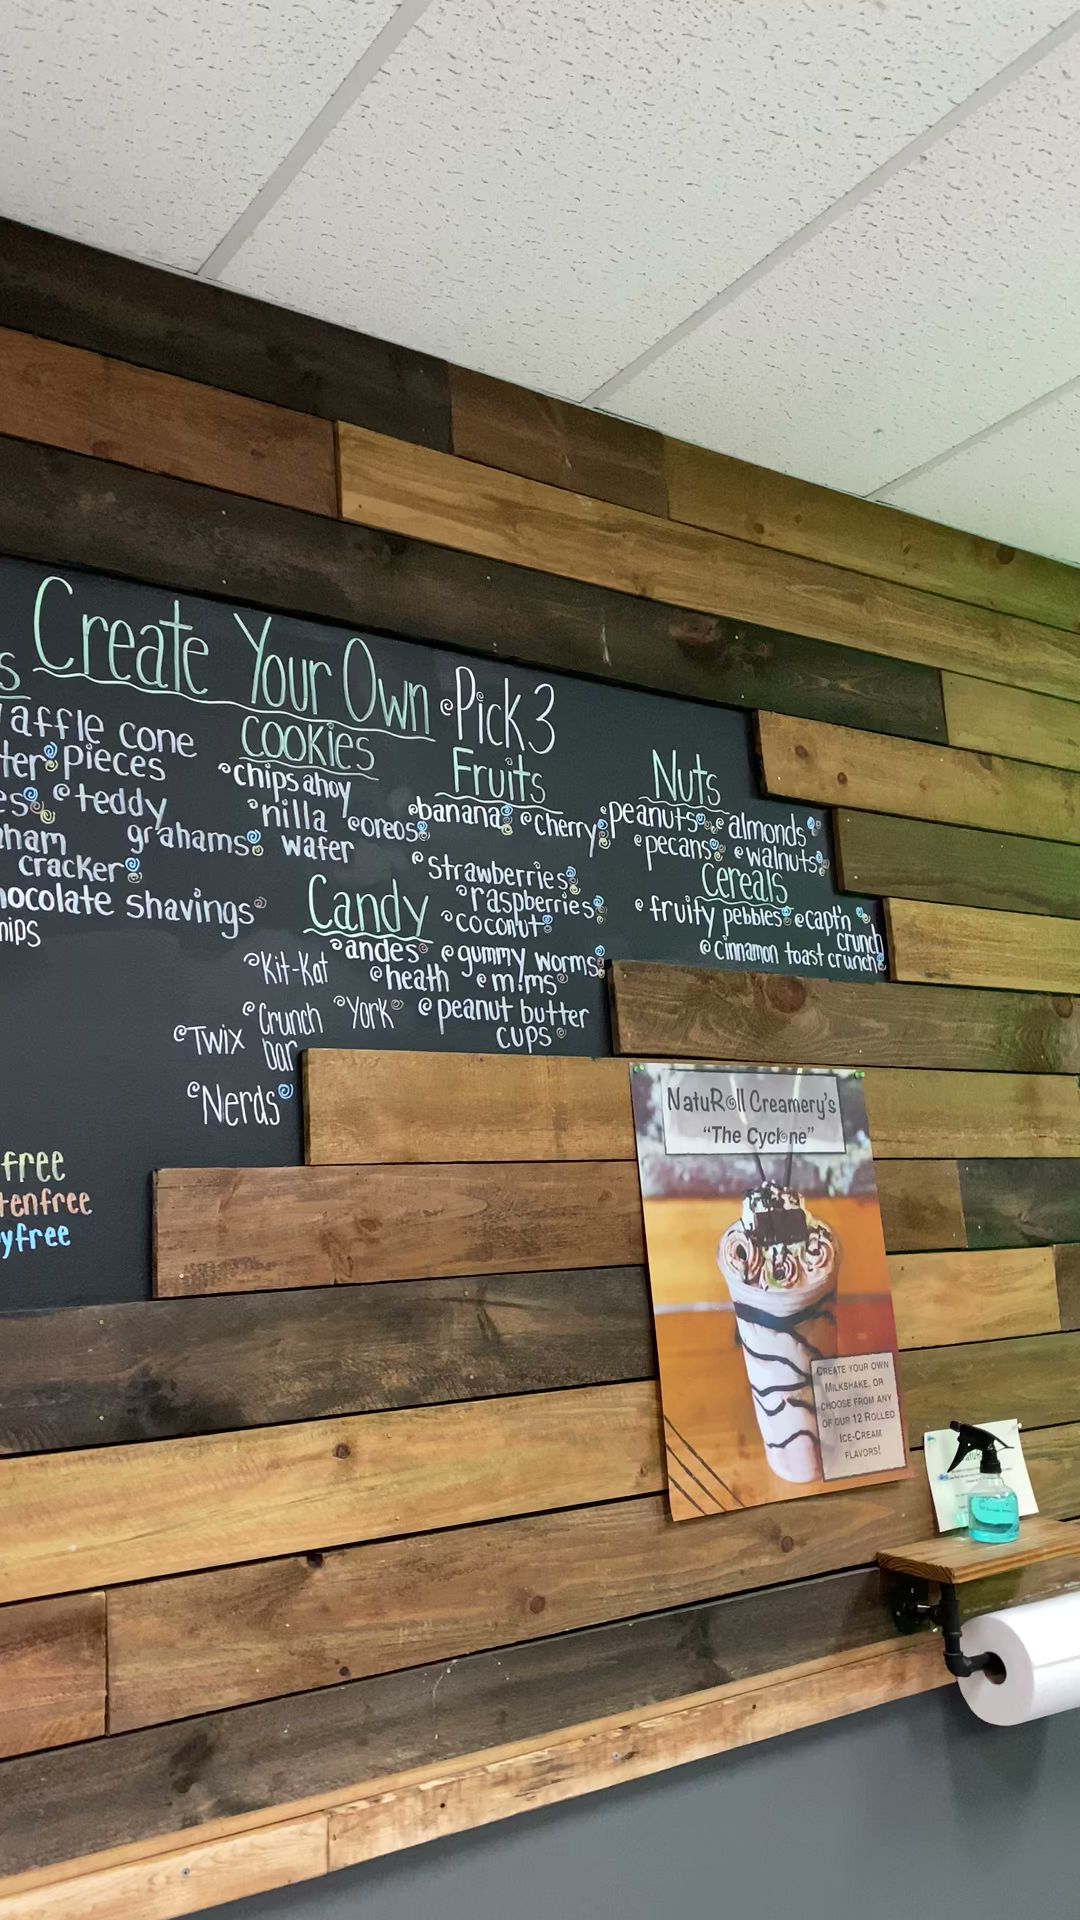 Create Your Own
Pick 3
affle cone
pieces
teddy
grahams
cracker
shavings
cookies
chips ahoy
nilla
wafer
oreos
Fruits
banana cherry
strawberries
raspberries
coconut
Nuts
peanuts almonds
pecans walnuts
Cereals
fruity pebbles capt'n
crunch
cinnamon toast crunch
Candy
andes gummy worms
Kit-Kat heath m!ms
Crunch
bar
York peanut butter
cups
Twix
Nerds
free
tenfree
yfree
NatuRoll Creamery's
"The Cyclone"
Create your own
Milkshake, or
choose from any
of our 12 Rolled
Ice-Cream
flavors!